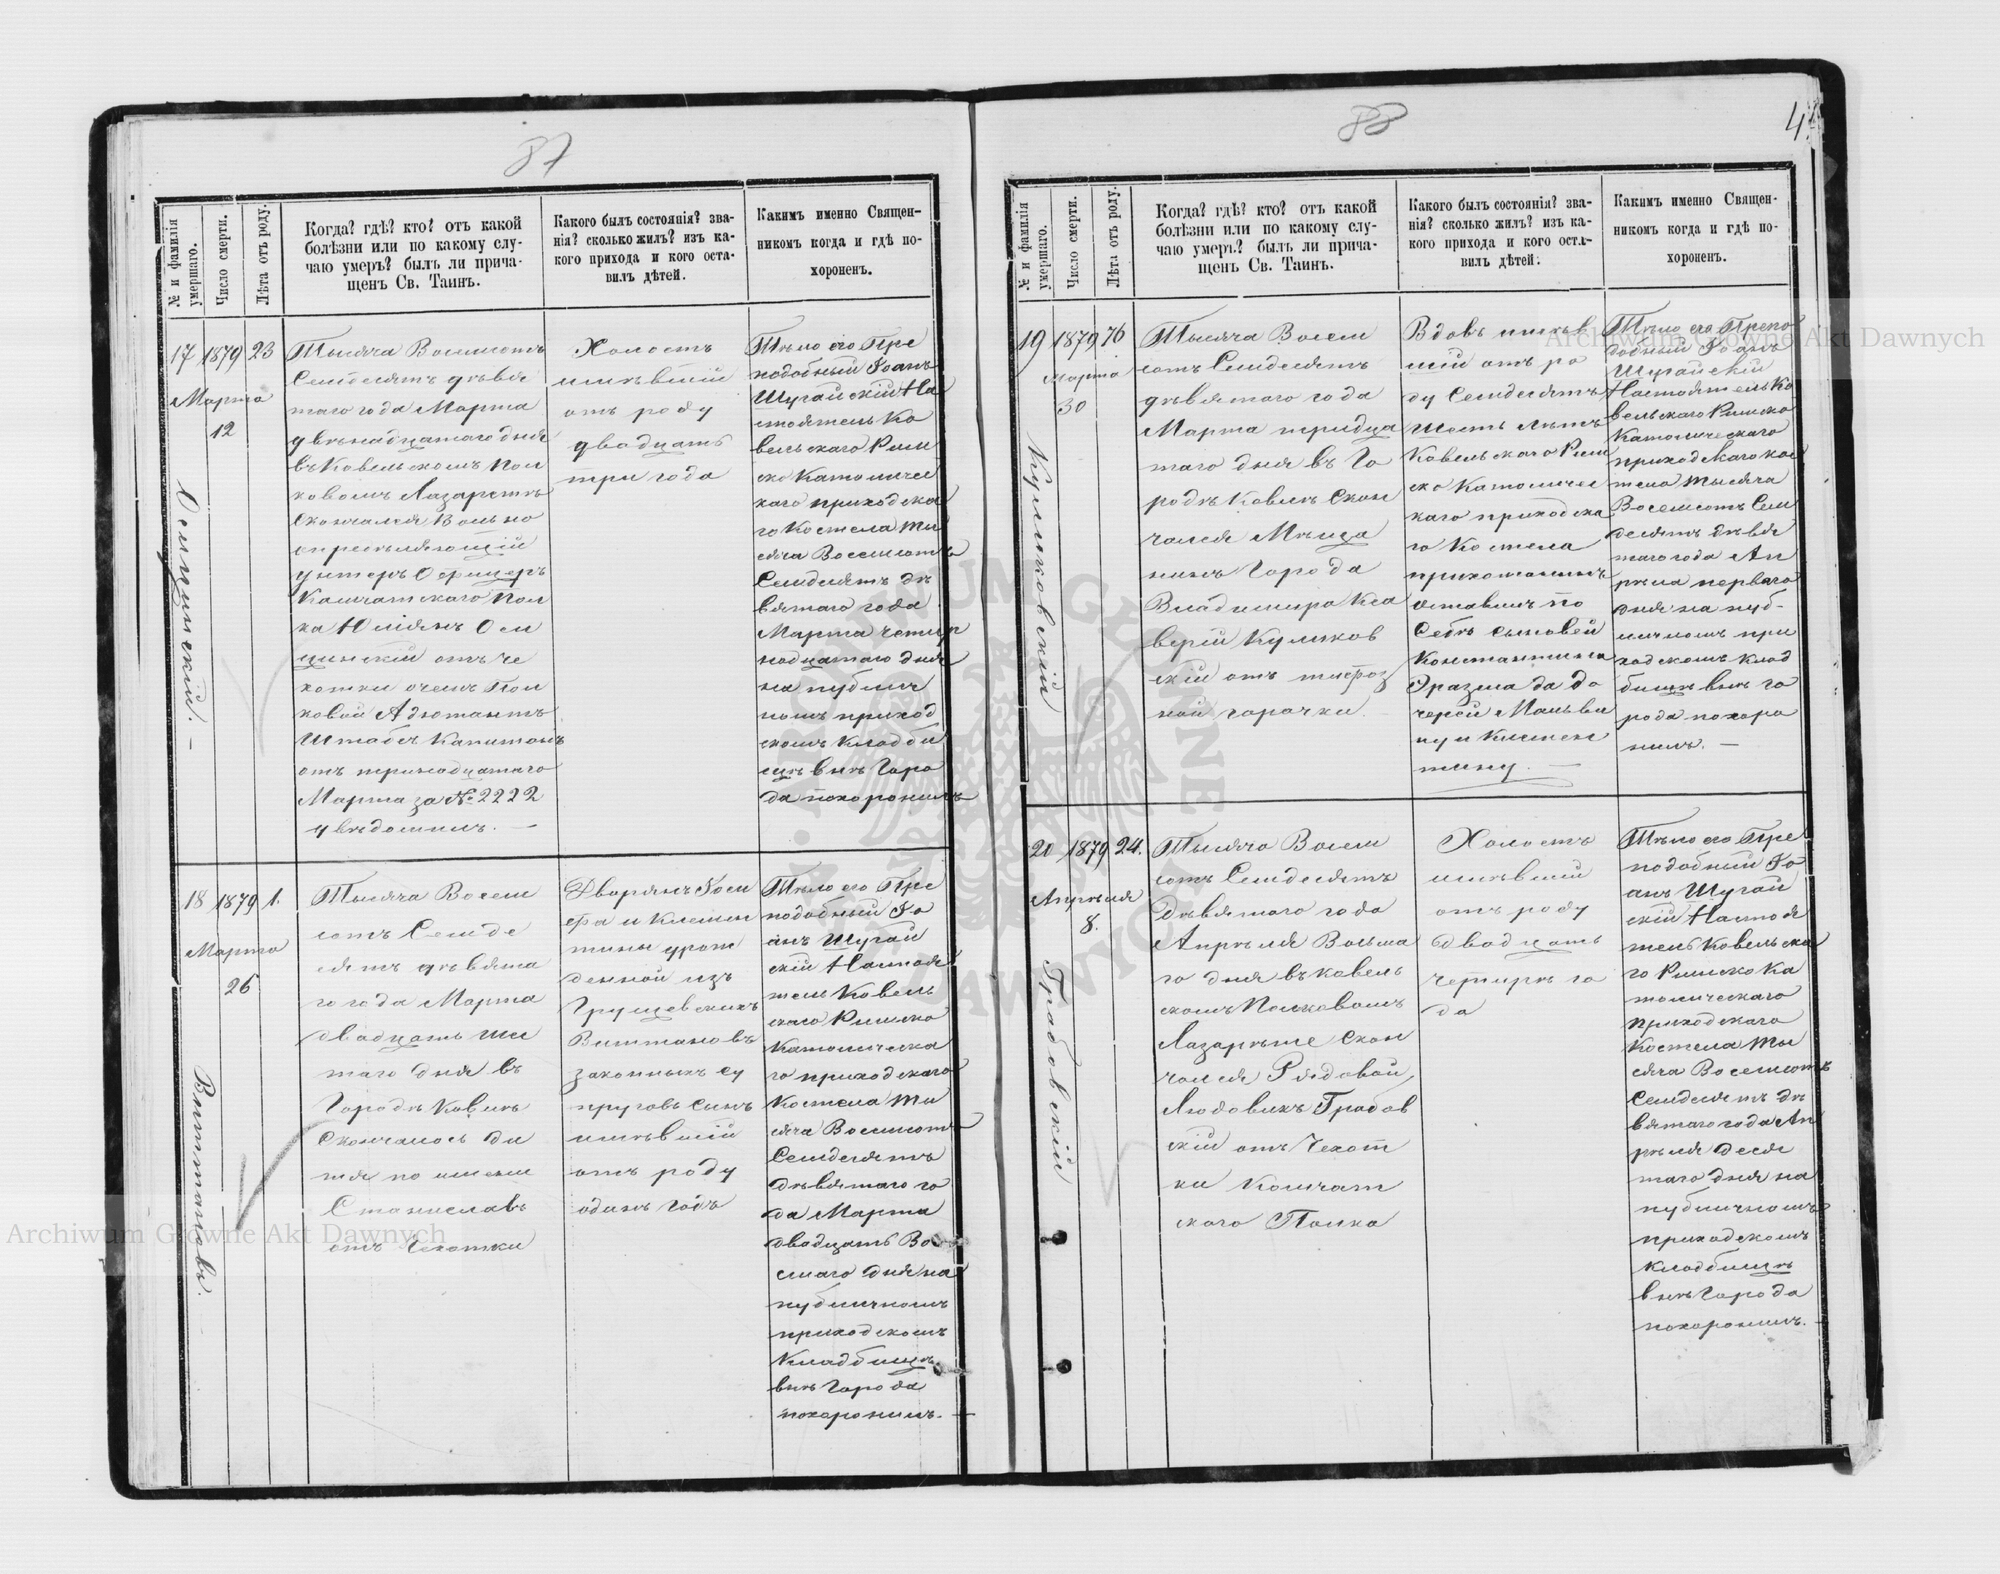 87
№ и фамилія умершаго.
Число смерти.
Лѣта отъ роду.
Когда? гдѣ? кто? отъ какой
болѣзни или по какому слу-
чаю умеръ? былъ ли прича-
щенъ Св. Таинъ.
Какого былъ состоянія? зва-
нія? сколько жилъ? изъ ка-
кого прихода и кого оста-
вилъ дѣтей.
Какимъ именно Священ-
никомъ когда и гдѣ по-
хороненъ.
17
1879
Марта
12
23
Осмицинскій. —
Тысяча Восемсотъ
Семдесятъ девя
таго года Марта
двѣнадцатаго дня
въ Ковельскомъ Пол
ковомъ Лазаретѣ
Скончался Вольно
опредѣляющій
Унтеръ Офицеръ
Камчатскаго Пол
ка Юліянъ Осми
цинскій отъ че
хотки о чемъ Пол
ковой Адютантъ
Штабсъ Капитанъ
отъ тринадцатаго
Марта за № 2222
увѣдомилъ. —
Холостъ
имѣвшій
отъ роду
двадцать
три года
Тѣло его Пре
подобный Іоанъ
Шугайскій На
стоятель Ко
вельскаго Рим
ско Католичес
каго приходска
го Костела ты
сяча Восемсотъ
Семдесятъ де
вятаго года
Марта четыр
надцатаго дня
на публич
номъ приход
скомъ кладби
щѣ внѣ Горо
да похоронилъ
18
1879
Марта
26
1.
Виттановъ.
Тысяча Восем
сотъ Семде
сятъ девята
го года Марта
двадцать шес
таго дня въ
Городѣ Ковлѣ
Скончалось ди
тя по имени
Станиславъ
отъ Чехотки
Дворянъ Іоси
фа и Клемен
тины урож
денной изъ
Грущевскихъ
Виттановъ
законныхъ су
пруговъ сынъ
имѣвшій
отъ роду
одинъ годъ
Тѣло его Пре
подобный Іо
анъ Шугай
скій Настоя
тель Ковель
скаго Римско
Католическа
го приходскаго
Костела ты
сяча Восемсотъ
Семдесятъ
девятаго го
да Марта
двадцать Во
смаго дня на
публичномъ
приходскомъ
Кладбищѣ
внѣ Города
похоронилъ. —
88
4
№ и фамилія умершаго.
Число смерти.
Лѣта отъ роду.
Когда? гдѣ? кто? отъ какой
болѣзни или по какому слу-
чаю умеръ? былъ ли прича-
щенъ Св. Таинъ.
Какого былъ состоянія? зва-
нія? сколько жилъ? изъ ка-
кого прихода и кого оста-
вилъ дѣтей.
Какимъ именно Священ-
никомъ когда и гдѣ по-
хороненъ.
19
1879
Марта
30
76
Куликовскій
Тысяча Восем
сотъ Семдесятъ
девятаго года
Марта тридца
таго дня въ Го
родѣ Ковлѣ Скон
чался Мѣща
нинъ Города
Владиміра Кса
верій Куликов
скій отъ тифоз
ной горячки.
Вдовъ имѣв
шій отъ ро
ду Семдесятъ
шесть лѣтъ
Ковельскаго Рим
ско Католичес
каго приходска
го Костела
прихожанинъ
оставилъ по
Себѣ сыновей
Константина
Эразма да до
черей Мальви
ну и Клемен
тину. —
Тѣло его Препо
добный Іоанъ
Шугайскій
Настоятель Ко
вельскаго Римско
Католическаго
приходскаго кос
тела тысяча
Восемсотъ Сем
десятъ девя
таго года Ап
рѣля перваго
дня на пуб-
личномъ при
ходскомъ клад
бищѣ внѣ го
рода похоро
нилъ. —
20
1879
Апрѣля
8.
24.
Грабовскій
Тысяча Восем
сотъ Семдесятъ
Девятаго года
Апрѣля Восьма
го дня въ Ковель
скомъ Полковомъ
Лазаретѣ Скон
чался Рядовой
Людовикъ Грабов
скій отъ Чехот
ки Камчат
скаго Полка
Холостъ
имѣвшій
отъ роду
двадцать
четыре го
да
Тѣло его Пре
подобный Іо
анъ Шугай
скій Настоя
тель Ковельска
го Римско Ка
толическаго
Приходскаго
Костела ты
сяча Восемсотъ
Семдесятъ де
вятаго года Ап
рѣля деся
таго дня на
публичномъ
приходскомъ
кладбищѣ
внѣ Города
похоронилъ. —
Archiwum Główne Akt Dawnych
Archiwum Główne Akt Dawnych
ARCHIWUM GŁÓWNE AKT DAWNYCH